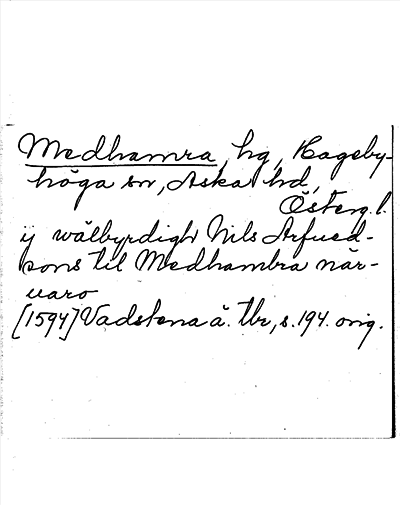 Medhamra, hg, Hageby-
höga sn, Aska hd,
Österg. l.
ij wälbyrdigh Nils Arfued-
sons til Medhambra när-
uaro
[1594] Vadstena ä. tbr, s. 194. orig.